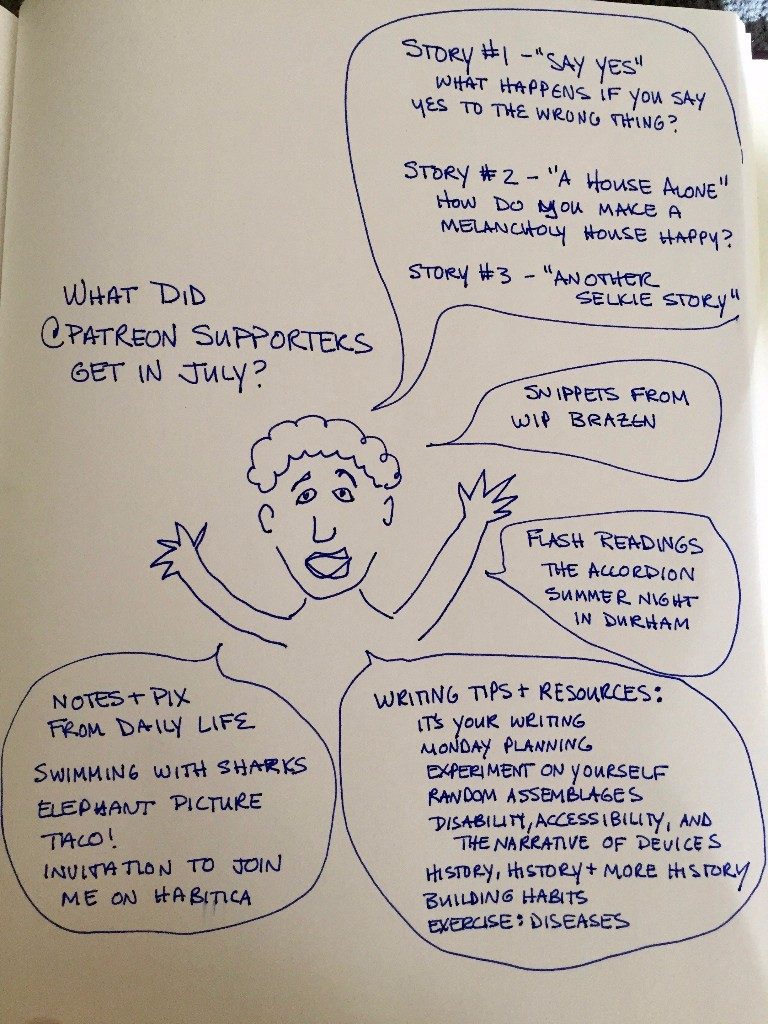 WHAT DID
@PATREON SUPPORTERS
GET IN JULY?
STORY #1 - "SAY YES"
WHAT HAPPENS IF YOU SAY
YES TO THE WRONG THING?
STORY #2 - "A HOUSE ALONE"
HOW DO YOU MAKE A
MELANCHOLY HOUSE HAPPY?
STORY #3 - "ANOTHER
SELKIE STORY"
SNIPPETS FROM
WIP BRAZEN
FLASH READINGS
THE ACCORDION
SUMMER NIGHT
IN DURHAM
NOTES + PIX
FROM DAILY LIFE
SWIMMING WITH SHARKS
ELEPHANT PICTURE
TACO!
INVITATION TO JOIN
ME ON HABITICA
WRITING TIPS + RESOURCES:
IT'S YOUR WRITING
MONDAY PLANNING
EXPERIMENT ON YOURSELF
RANDOM ASSEMBLAGES
DISABILITY, ACCESSIBILITY, AND
THE NARRATIVE OF DEVICES
HISTORY, HISTORY + MORE HISTORY
BUILDING HABITS
EXERCISE: DISEASES